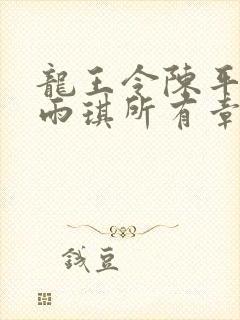 龍王令陳平
雨琪所有章
錢豆